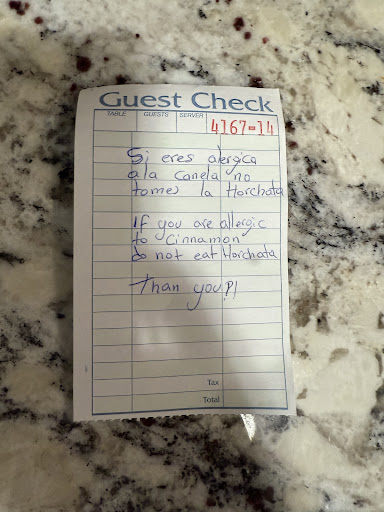 Guest Check
TABLE GUESTS SERVER
4167-14
Si eres alergica
a la Canela no
tomes la Horchata
If you are allergic
to Cinnamon
do not eat Horchata
Than you P!
Tax
Total